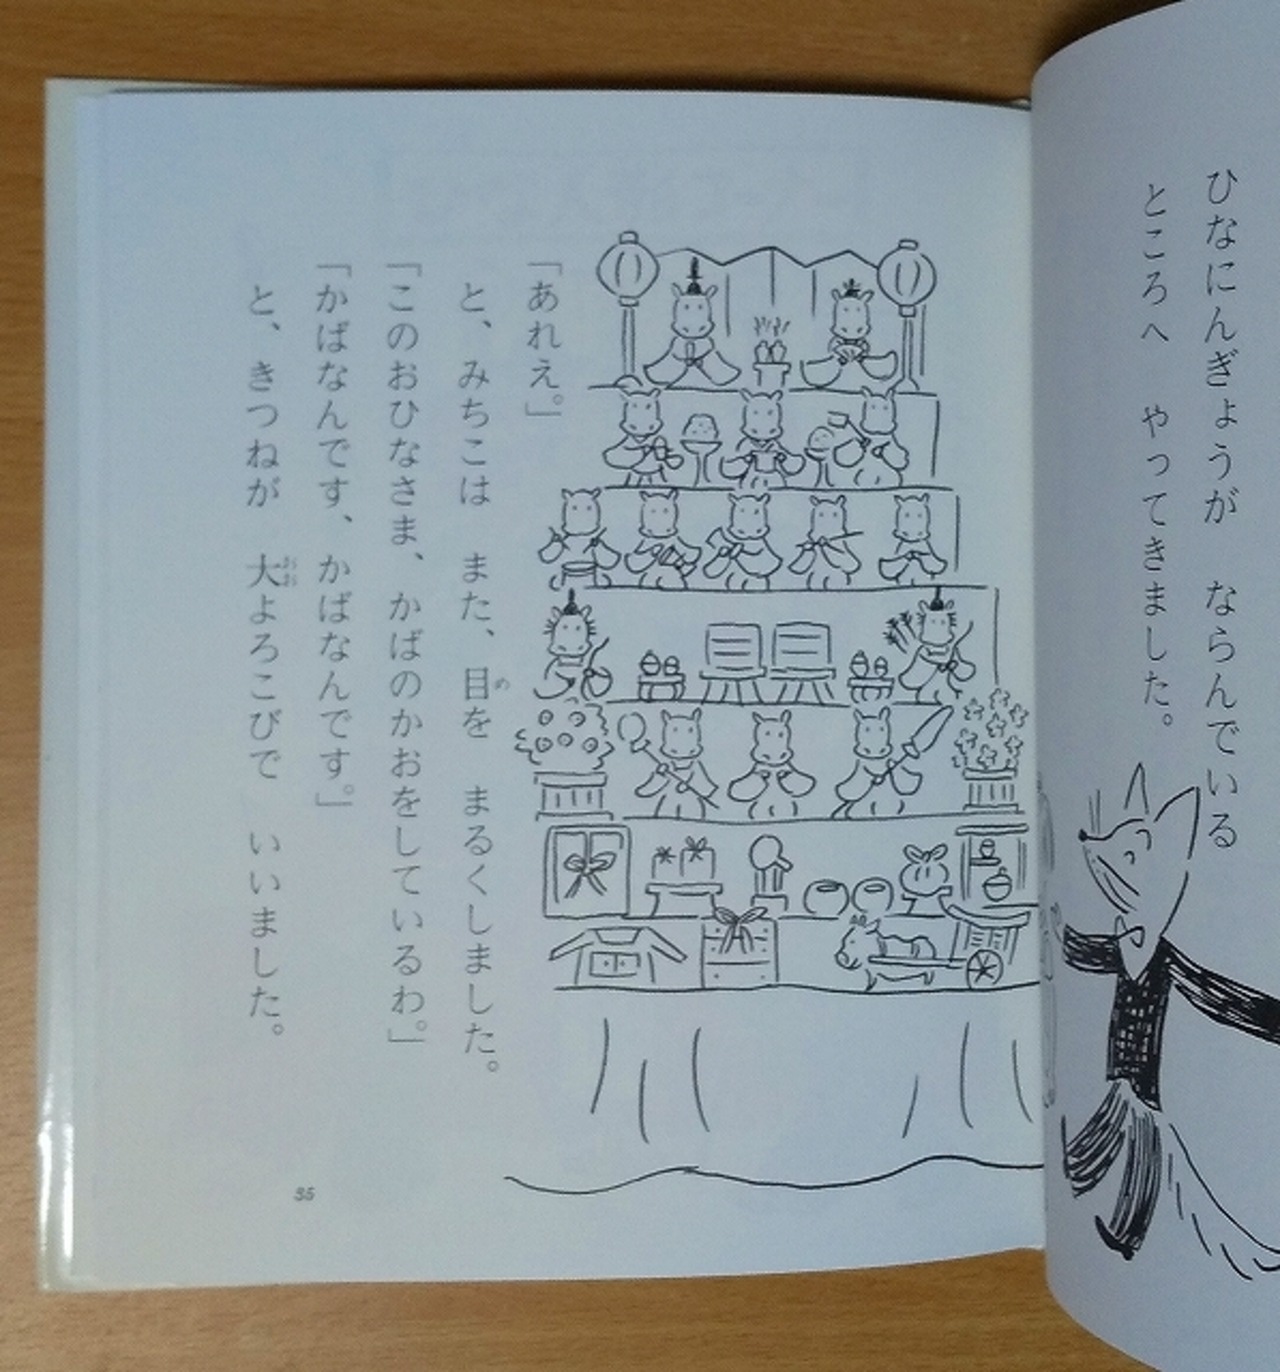 ひなにんぎょうが　ならんでいる
ところへ　やってきました。
「あれえ。」
と、みちこは　また、目を　まるくしました。
「このおひなさま、かばのかおをしているわ。」
「かばなんです、かばなんです。」
と、きつねが　大よろこびで　いいました。
35